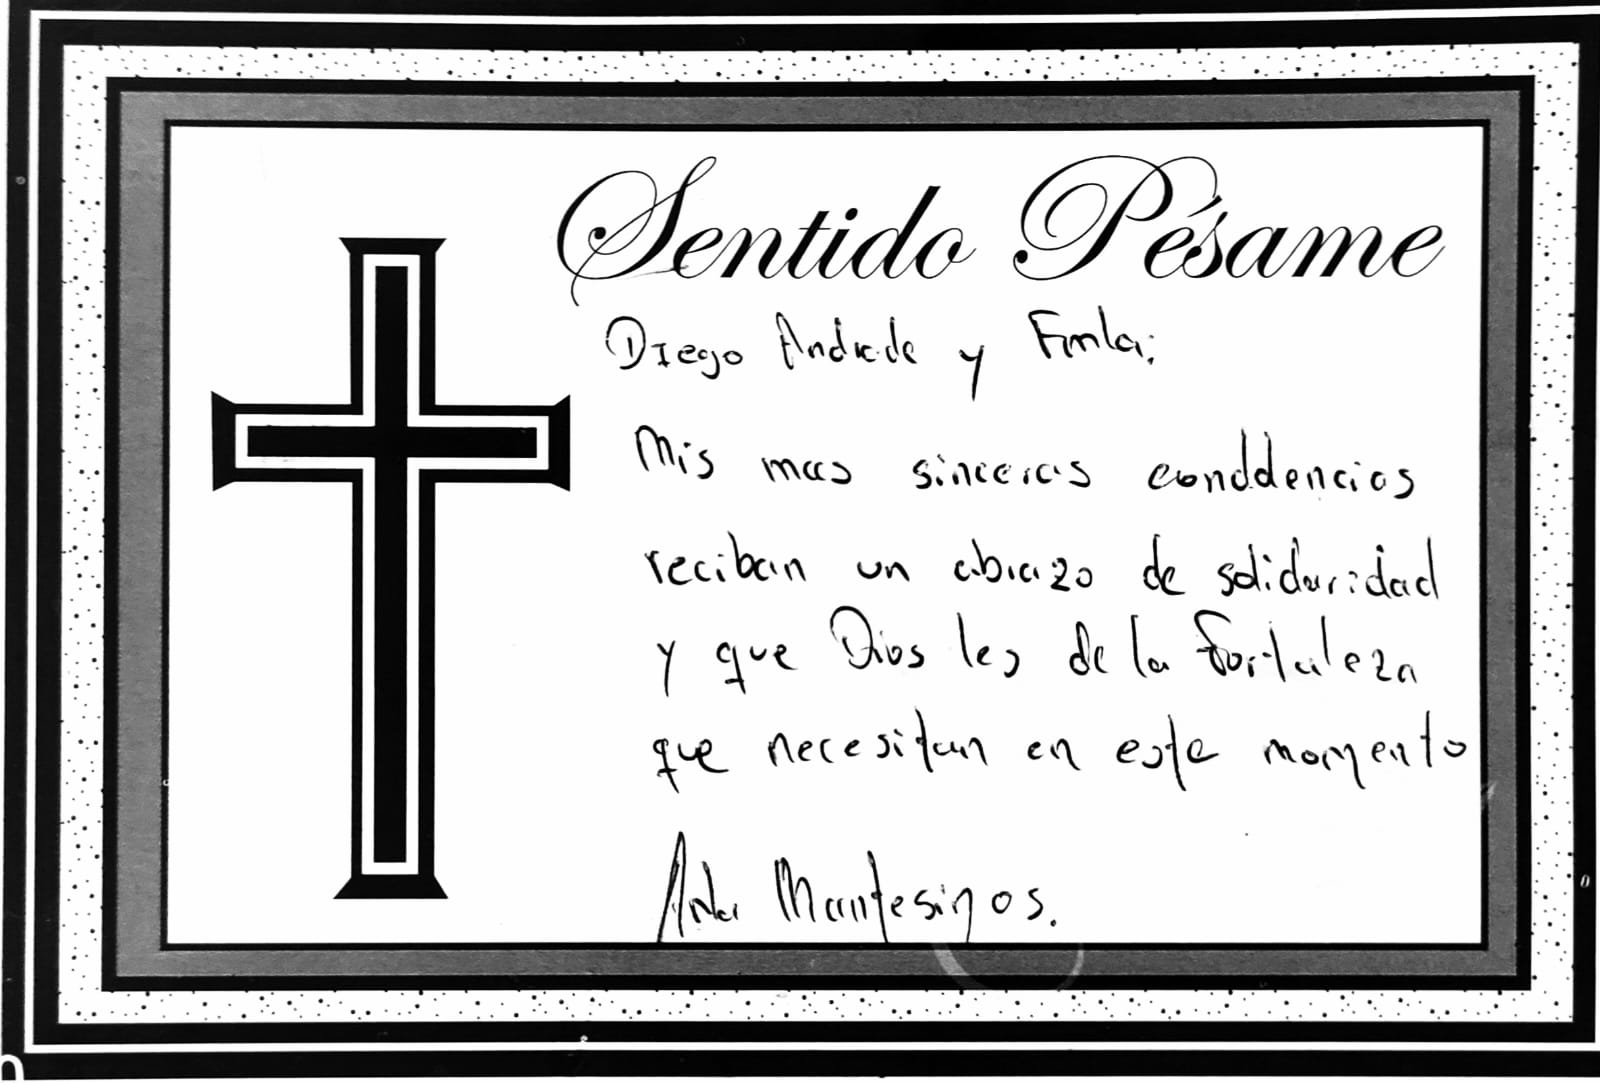 Sentido Pésame
Diego Andrade y Fmla;
Mis mas sinceras conddencias
reciban un abrazo de solidaridad
y que Dios les de la fortaleza
que necesitan en este momento
Mantesinos.